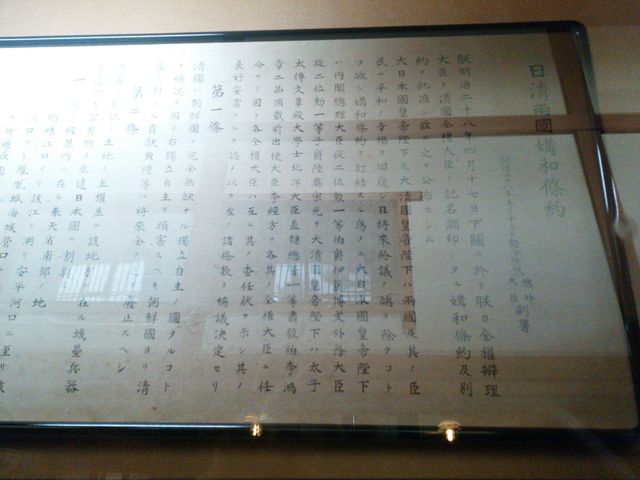 日清兩國媾和條約
明治二十八年五月十三日
總外
大臣副署
朕明治二十八年四月十七日下關ニ於テ朕カ全權辨理
大臣ト清國全權大臣ノ記名調印シタル媾和條約及別
約ヲ批准シ茲ニ之ヲ公布セシム
大日本國皇帝陛下及大清國皇帝陛下ハ兩國及其ノ臣
民ニ平和ノ幸福ヲ回復シ且將來紛議ノ端ヲ除クコト
ヲ欲シ媾和條約ヲ訂結スル爲メニ大日本國皇帝陛下
ハ内閣總理大臣從二位勲一等伯爵伊藤博文外務大臣
從二位勲一等子爵陸奧宗光ヲ大清國皇帝陛下ハ太子
太傳文華殿大學士北洋大臣直隷總督一等肅毅伯李鴻
章二品頂戴前出使大臣李經方ヲ各其ノ全權大臣ニ任
命セリ因テ各全權大臣ハ互ニ其ノ委任狀ヲ示シ其ノ
良好妥當ナルヲ認メ以テ左ノ諸條款ヲ協議決定セリ
第一條
清國ハ朝鮮國ノ完全無缺ナル獨立自主ノ國タルコト
ヲ確認ス因テ右獨立自主ヲ損害スヘキ朝鮮國ヨリ清
國ニ對スル貢獻典禮等ハ將來全ク之ヲ廢止スヘシ
第二條
土地ノ主權並ニ該地方ニ在ル城壘兵器
官有物ヲ永遠日本國ニ割與ス
一 經界内ニ在ル奉天省南部ノ地
鴨綠江口ヨリ該江ヲ溯リ安平河口ニ至リ
鳳凰城海城營口